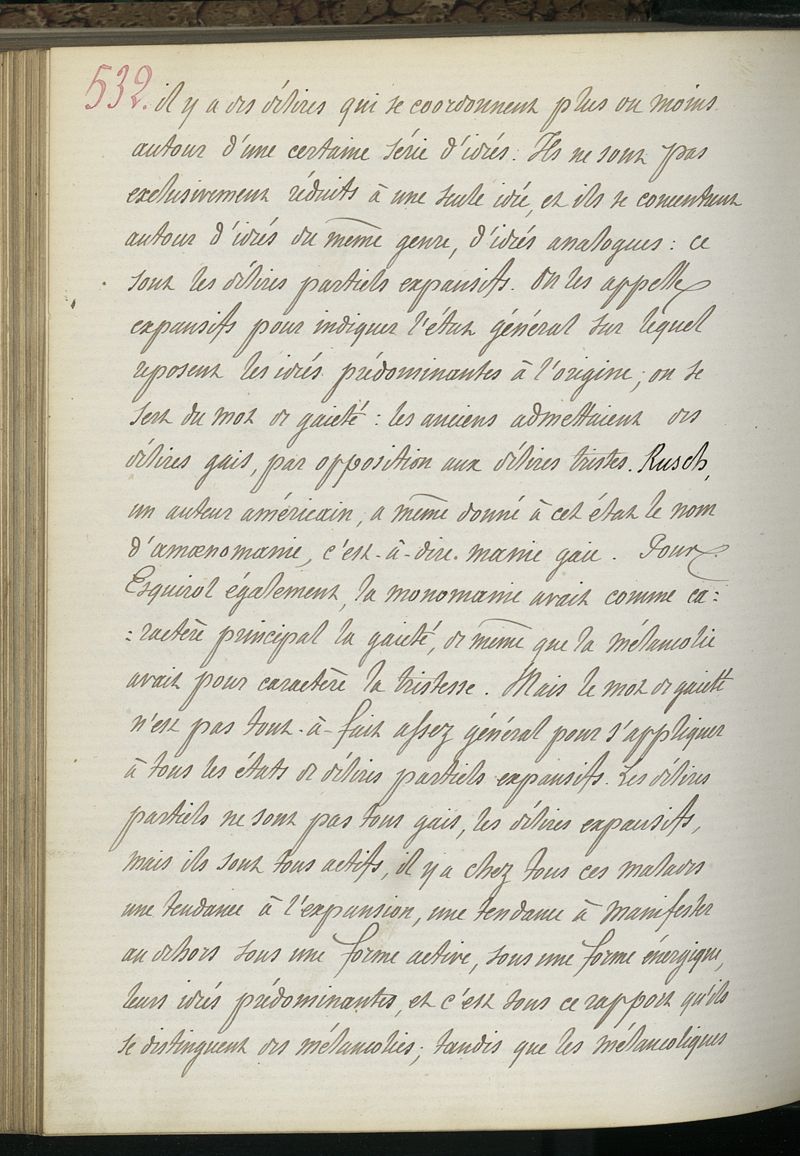 532. il y a des délires qui se coordonnent plus ou moins
autour d'une certaine série d'idées. Ils ne sont pas
exclusivement réduits à une seule idée, et ils se concentrent
autour d'idées du même genre, d'idées analogues : ce
sont les délires partiels expansifs. On les appelle
expansifs pour indiquer l'état général sur lequel
reposent les idées prédominantes à l'origine ; on se
sert du mot de gaieté : les anciens admettaient des
délires gais, par opposition aux délires tristes. Rusch,
un auteur américain, a même donné à cet état le nom
d'amœnomanie, c'est-à-dire. manie gaie. Pour
Esquirol également, la monomanie avait comme ca:
:ractère principal la gaieté, de même que la mélancolie
avait pour caractère la tristesse. Mais le mot de gaieté
n'est pas tout-à-fait assez général pour s'appliquer
à tous les états de délires partiels expansifs. Les délires
partiels ne sont pas tous gais, les délires expansifs,
mais ils sont tous actifs, il y a chez tous ces malades
une tendance à l'expansion, une tendance à manifester
au dehors sous une forme active, sous une forme énergique,
leurs idées prédominantes, et c'est sous ce rapport qu'ils
se distinguent des mélancolies ; tandis que les mélancoliques